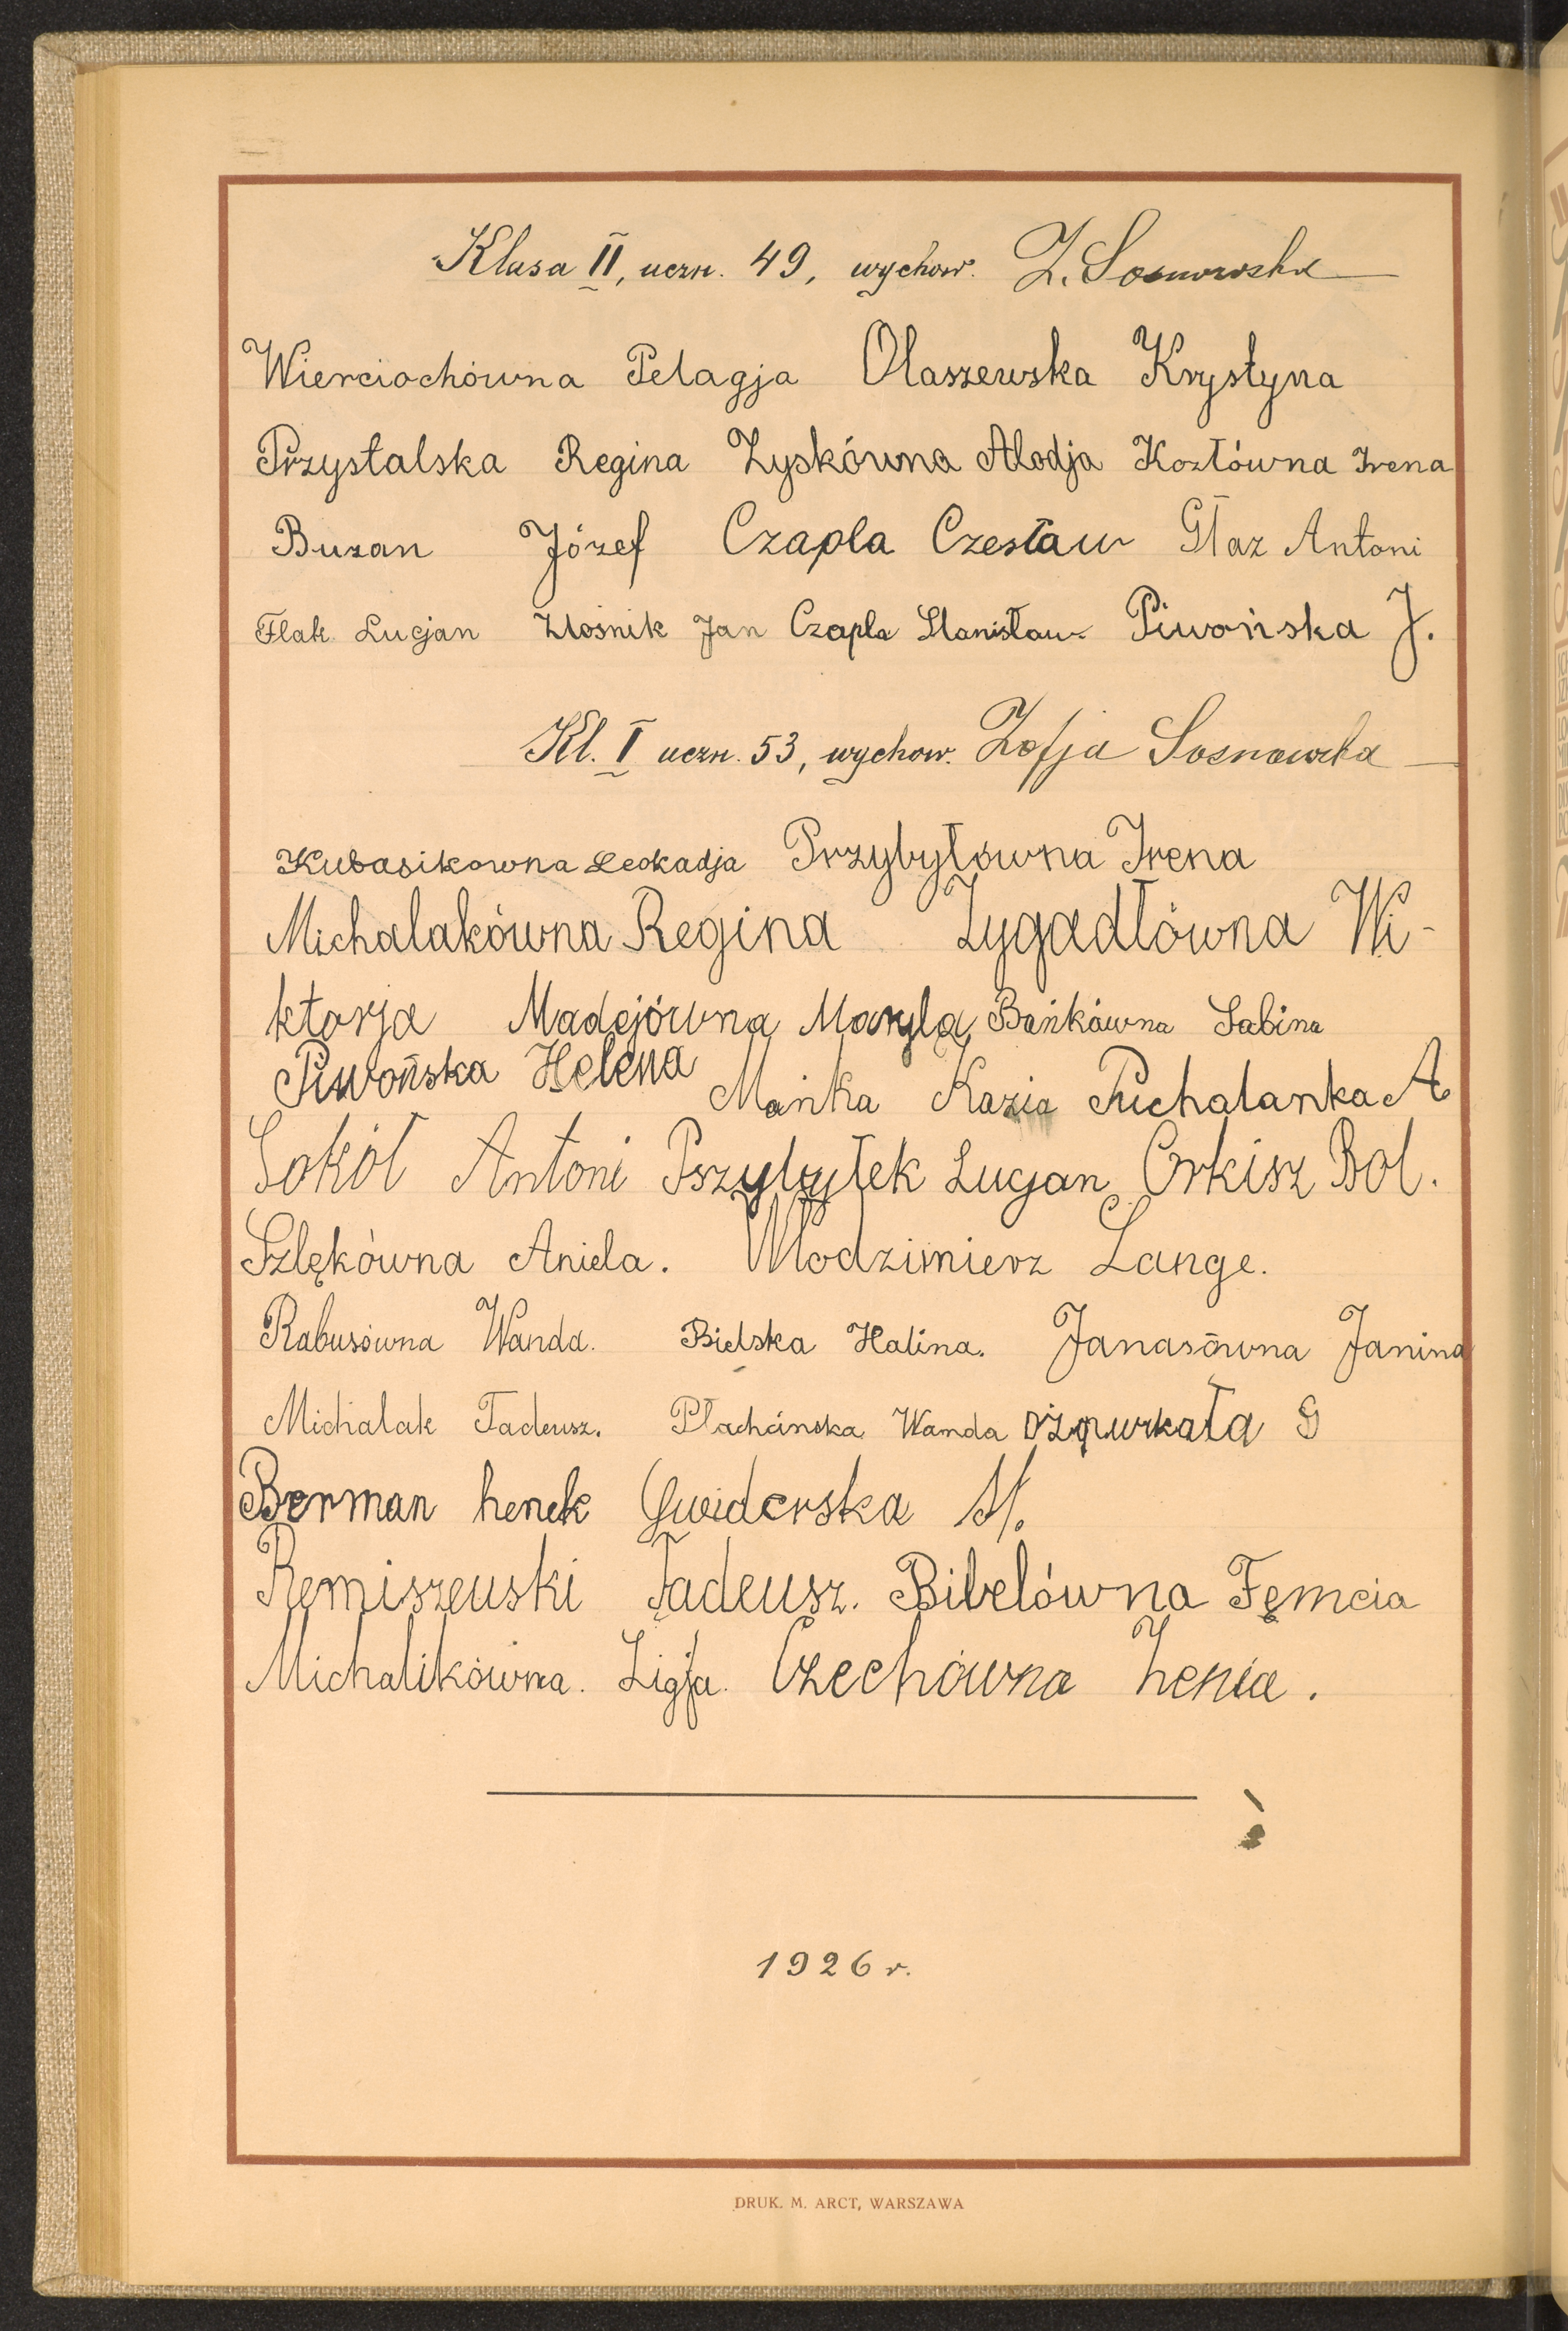 Klasa II, uczn. 49, wychow. Z. Sosnowska
Wierciochówna Pelagja Olaszewska Krystyna
Przystalska Regina Zyskówna Alodja Kozłówna Irena
Buzan Józef Czapla Czesław Głaz Antoni
Flak Lucjan Złośnik Jan Czapla Stanisław Piwońska J.
Kl. I uczn. 53, wychow. Zofja Sosnowska
Kubasikowna Leokadja Przybyłówna Irena
Michalakówna Regina Zygadłówna Wi-
ktorja Madejówna Maryla Bańkówna Sabina
Piwońska Helena Mańka Kazia Puchalanka A
Sokół Antoni Pszybyłek Lucjan Orkisz Bol.
Szlękówna Aniela. Włodzimierz Lange.
Rabusówna Wanda. Bielska Halina. Janasówna Janina
Michalak Tadeusz. Płachcińska Wanda
Berman henek Gwiderska M.
Remiszeuski Tadeusz. Bibelówna Fęmcia
Michalikówna. Ligja. Czechówna henia.
1926 r.
DRUK. M. ARCT, WARSZAWA